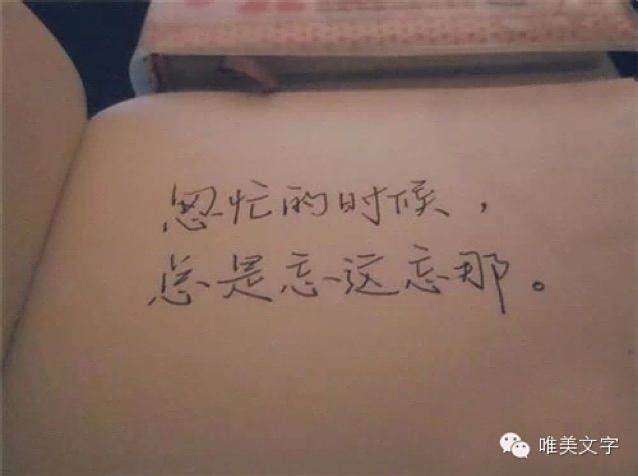 忽忙的时候，
总是忘这忘那。
唯美文字